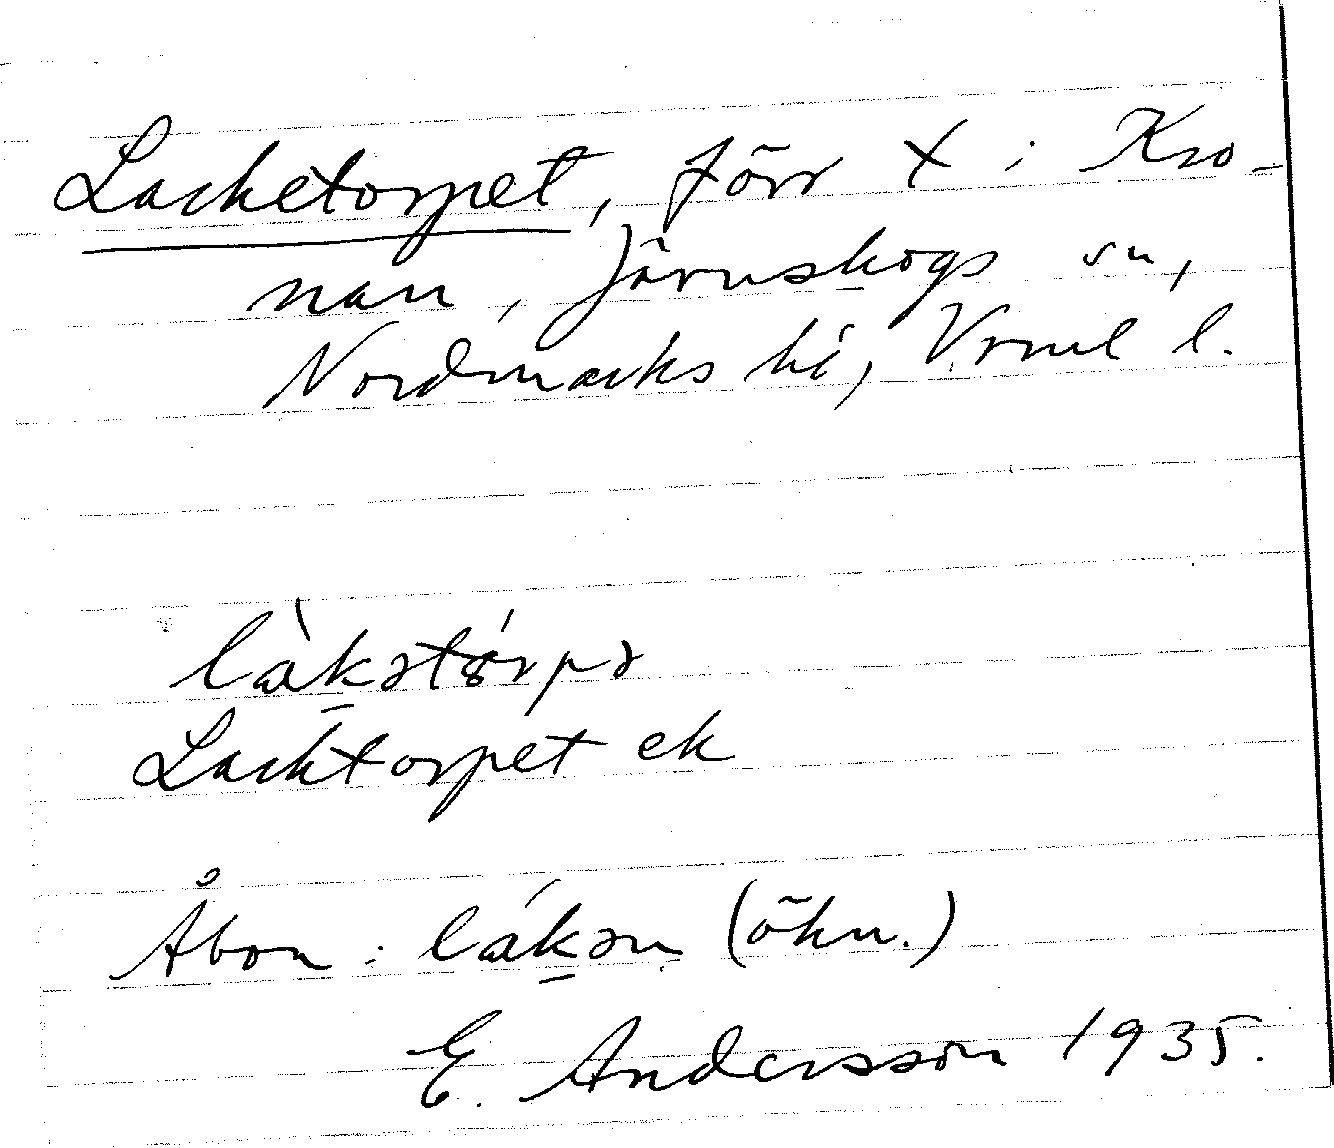 Lacketorpet, förr x i Kro-
nan, Järnskogs sn,
Nordmarks hd, Vrml l.
làkǝtórpǝ
Lacktorpet ek
Åbon: lákǝn (ökn.)
E. Andersson 1935.